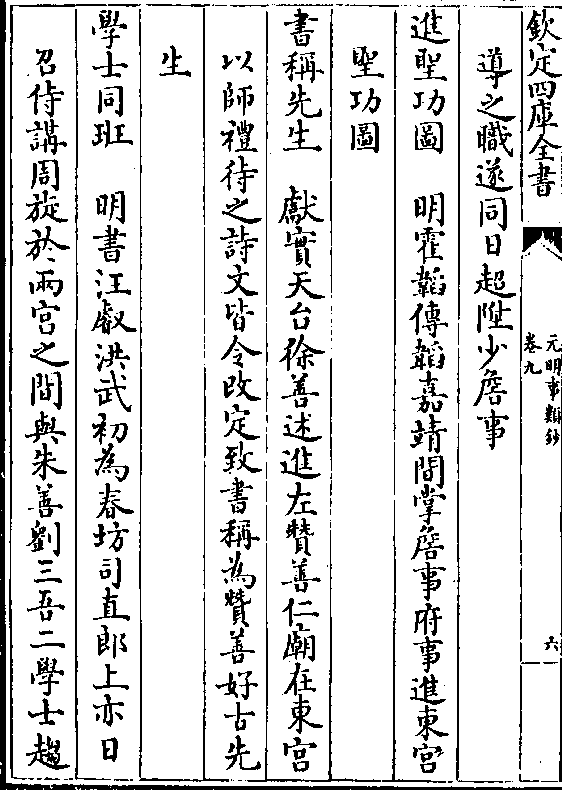 欽定四庫全書
元明事類鈔
卷九
六
導之職遂同日超陞少詹事
進聖功圖　明霍韜傳韜嘉靖間掌詹事府事進東宮
聖功圖
書稱先生　獻實天台徐善述進左贊善仁廟在東宮
以師禮待之詩文皆令改定致書稱為贊善好古先
生
學士同班　明書江叡洪武初為春坊司直郎上亦日
召侍講周旋於兩宮之間與朱善劉三吾二學士趨